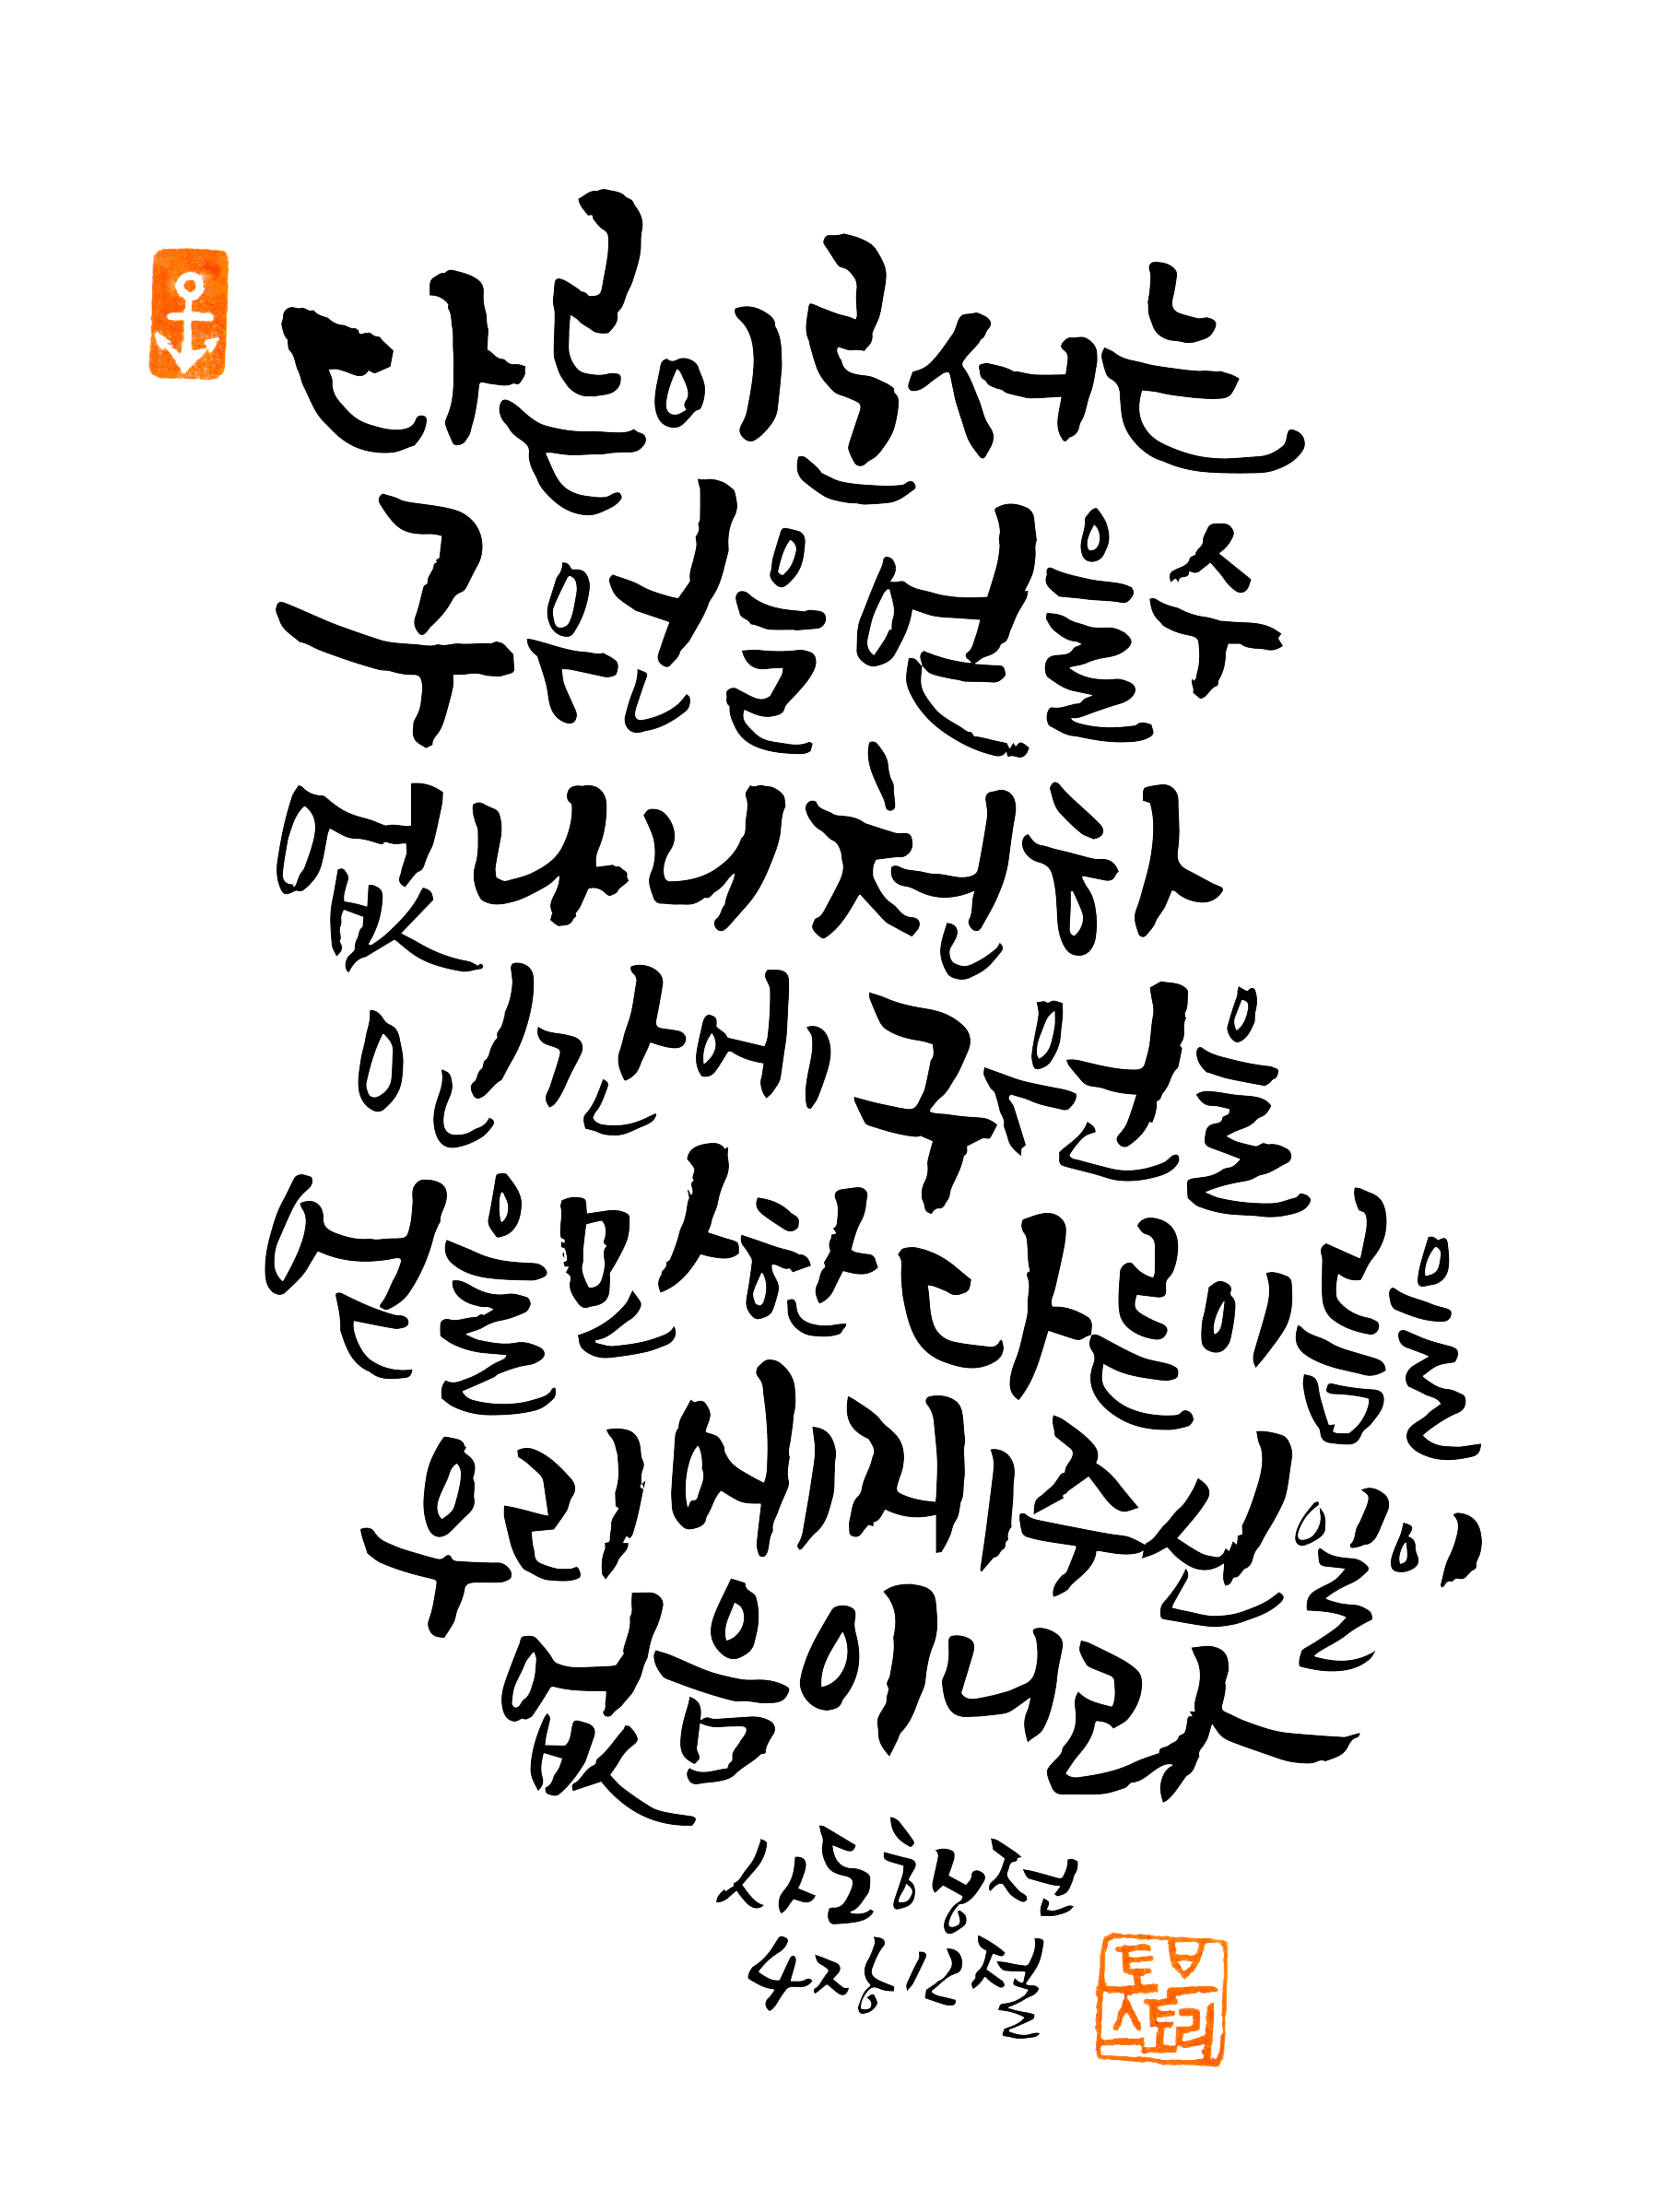 다른이로서는
구원을 얻을 수
없나니 천하
인간에 구원을
얻을만한 다른이름을
우리에게 주신 일이
없음이니라
사도행전
4장 12절